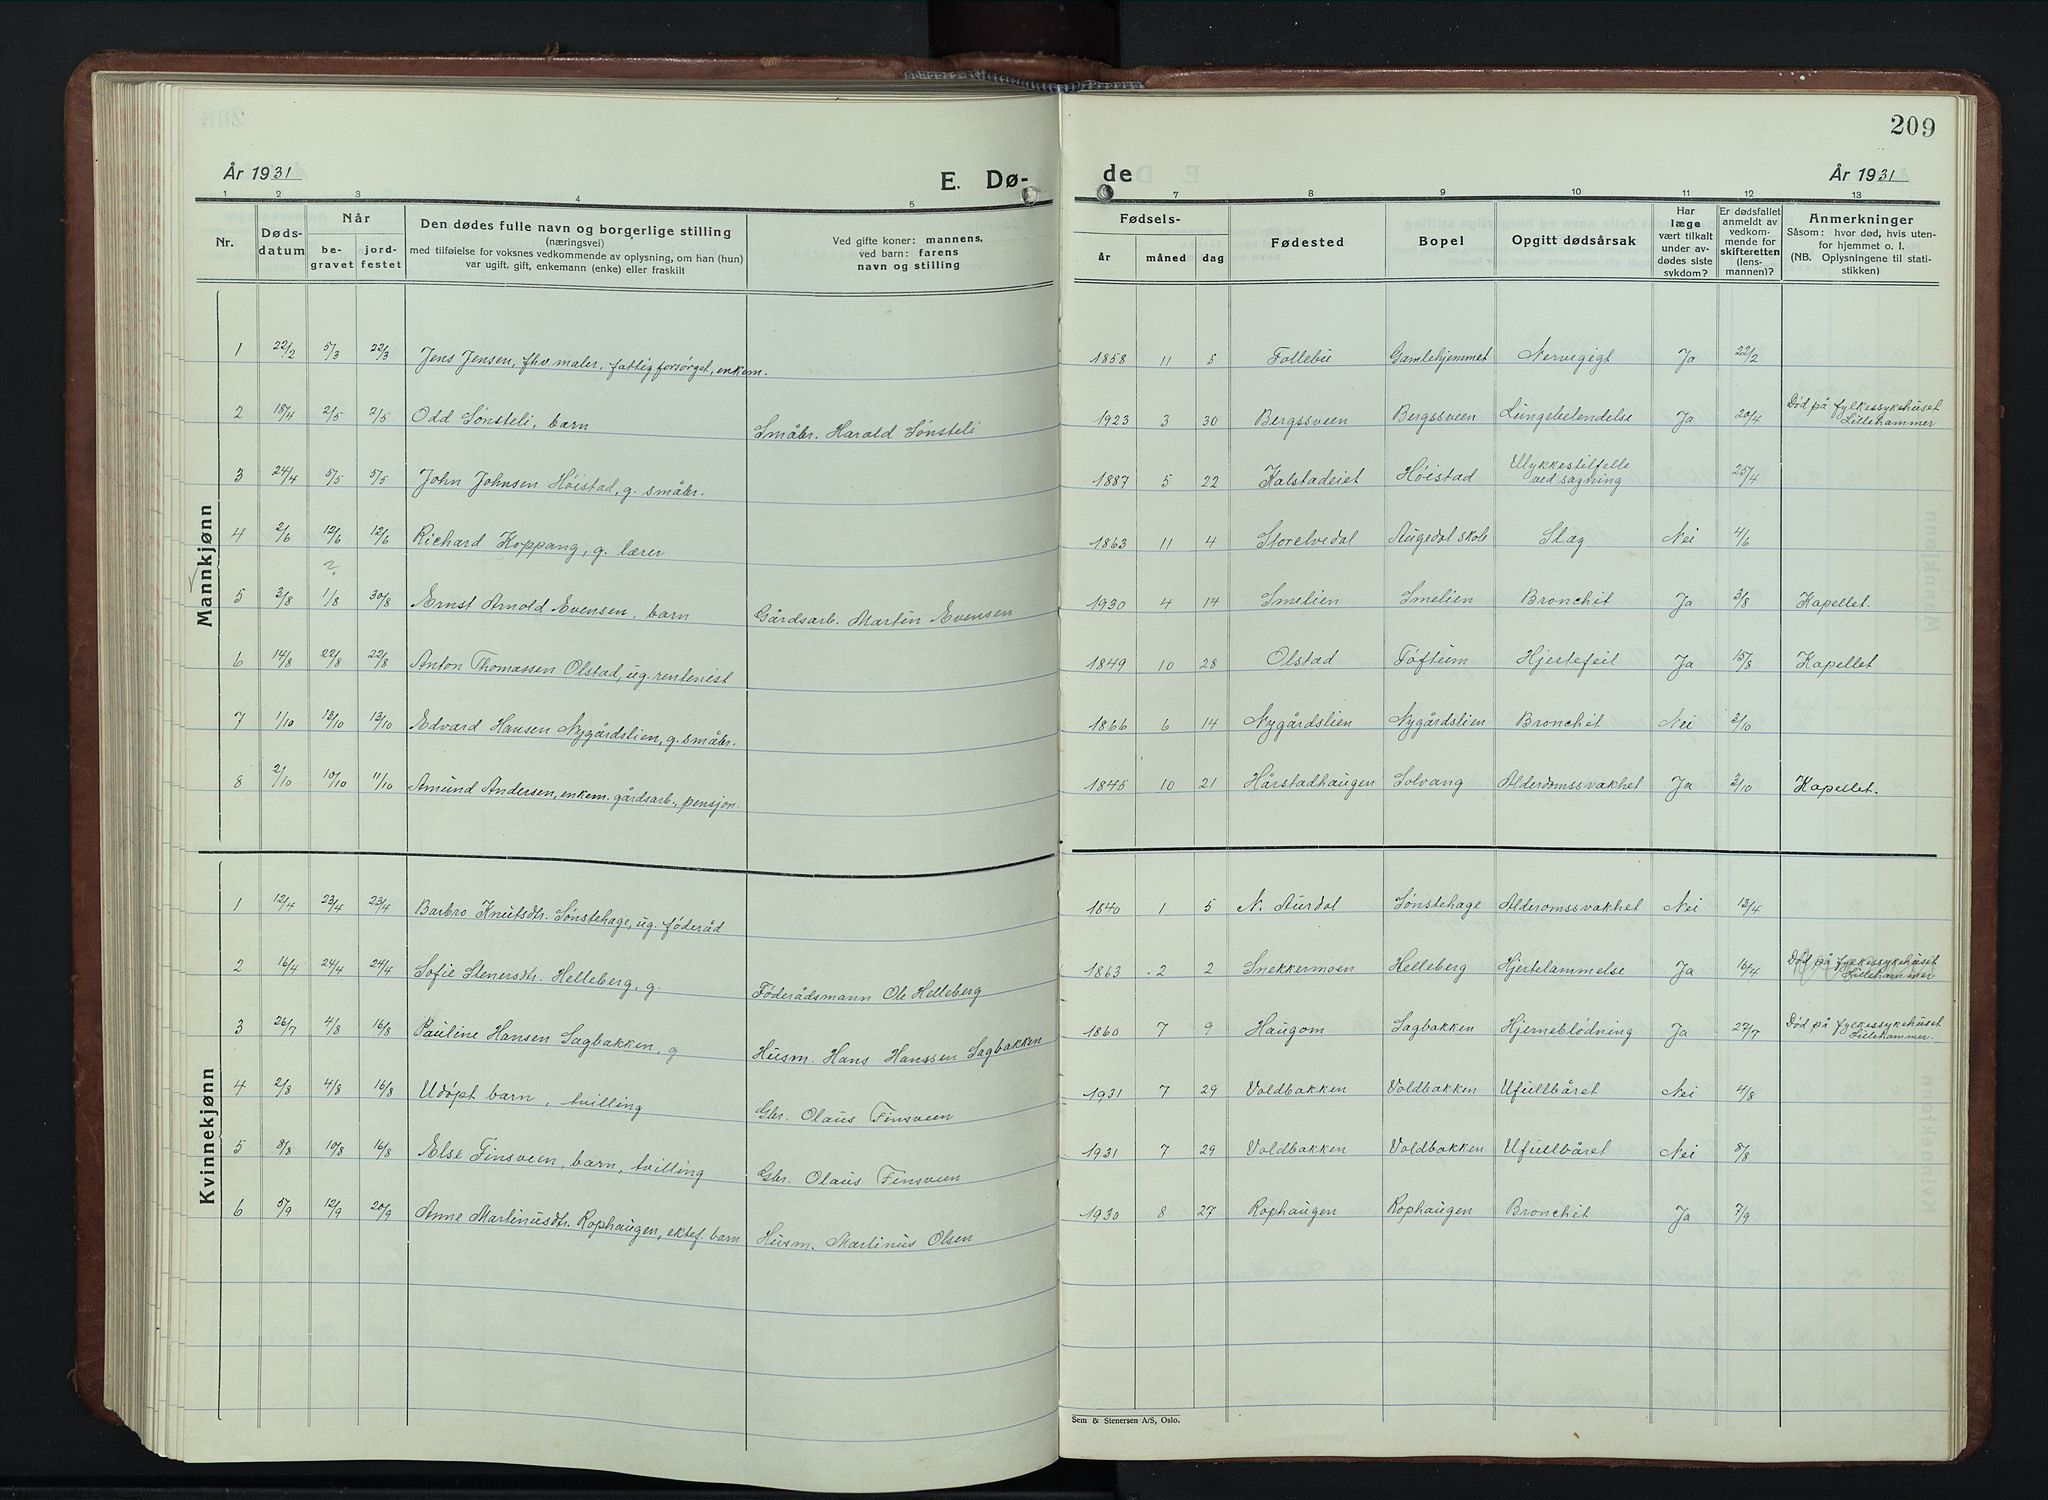 209
År 1931
E. Dø-
de
År 1931
1 2 3 4 5
7 8 9 10 11 12 13
Nr.
Døds-
datum
Når
be-
gravet
jord-
festet
Den dødes fulle navn og borgerlige stilling
(næringsvei)
med tilføielse for voksnes vedkommende av oplysning, om han (hun)
var ugift, gift, enkemann (enke) eller fraskilt
Ved gifte koner: mannens,
ved barn: farens
navn og stilling
Fødsels-
år måned dag
Fødested
Bopel
Opgitt dødsårsak
Har
læge
vært tilkalt
under av-
dødes siste
sykdom?
Er dødsfallet
anmeldt av
vedkom-
mende for
skifteretten
(lens-
mannen)?
Anmerkninger
Såsom: hvor død, hvis uten-
for hjemmet o. l.
(NB. Oplysningene til stati-
stikken)
Mannkjønn
1 22/2 5/3 22/3 Jens Jensen, fhv. maler, fattigforsørget, enkem. 1858 11 5 Follebu Gamlehjemmet Nervegigt Ja 22/2
2 18/4 2/5 2/5 Odd Sønsteli, barn Småbr. Harald Sønsteli 1923 3 30 Bergssveen Bergssveen Lungebetendelse Ja 20/4 Død på fylkessykehuset
Lillehammer
3 24/4 5/5 5/5 John Johnsen Høistad, g. småbr. 1887 5 22 Kalstadeiet Høistad Ulykkestilfelle
ved sagning 25/4
4 2/6 12/6 12/6 Richard Koppang, g. lærer 1863 11 4 Storelvedal Augedal skole Slag Nei 4/6
?
5 3/8 1/8 30/8 Ernst Arnold Evensen, barn Gårdsarb. Martin Evensen 1930 4 14 Smelien Smelien Bronchit Ja 3/8 Kapellet.
6 14/8 22/8 22/8 Anton Thomassen Olstad, ug. rentenist 1849 10 28 Olstad Toftum Hjertefeil Ja 15/8 Kapellet
7 1/10 13/10 13/10 Edvard Hansen Nygårdslien, g. småbr. 1866 6 14 Nygårdslien Nygårdslien Bronchit Nei 3/10
8 2/10 10/10 11/10 Amund Andersen, enkem. gårdsarb., pensjon. 1845 10 21 Hårstadhaugen Solvang Alderdomssvakhet Ja 3/10 Kapellet.
Kvinnekjønn
1 12/4 23/4 23/4 Barbro Knutsdtr. Sønstehage, ug. føderåd 1840 1 5 N. Aurdal Sønstehage Alderomssvakhet Nei 13/4
2 16/4 24/4 24/4 Sofie Stenersdtr. Helleberg, g. Føderådsmann Ole Helleberg 1863 2 2 Snekkermoen Helleberg Hjertelammelse Ja 16/4 Død på fylkessykehuset
Lillehammer
3 26/7 4/8 16/8 Pauline Hansen Sagbakken, g Husm. Hans Hanssen Sagbakken 1860 7 9 Haugom Sagbakken Hjerneblødning Ja 27/7 Død på fylkessykehuset
Lillehammer.
4 2/8 4/8 16/8 Udøpt barn, tvilling Gbr. Olaus Finsveen 1931 7 29 Voldbakken Voldbakken Ufullbåret Nei 4/8
5 8/8 10/8 16/8 Else Finsveen, barn, tvilling Gbr. Olaus Finsveen 1931 7 29 Voldbakken Voldbakken Ufullbåret Nei 8/8
6 5/9 12/9 20/9 Anne Martinusdtr. Rophaugen, ektef. barn Husm. Martinus Olsen 1930 8 27 Rophaugen Rophaugen Bronchit Ja 7/9
Sem & Stenersen A/S, Oslo.